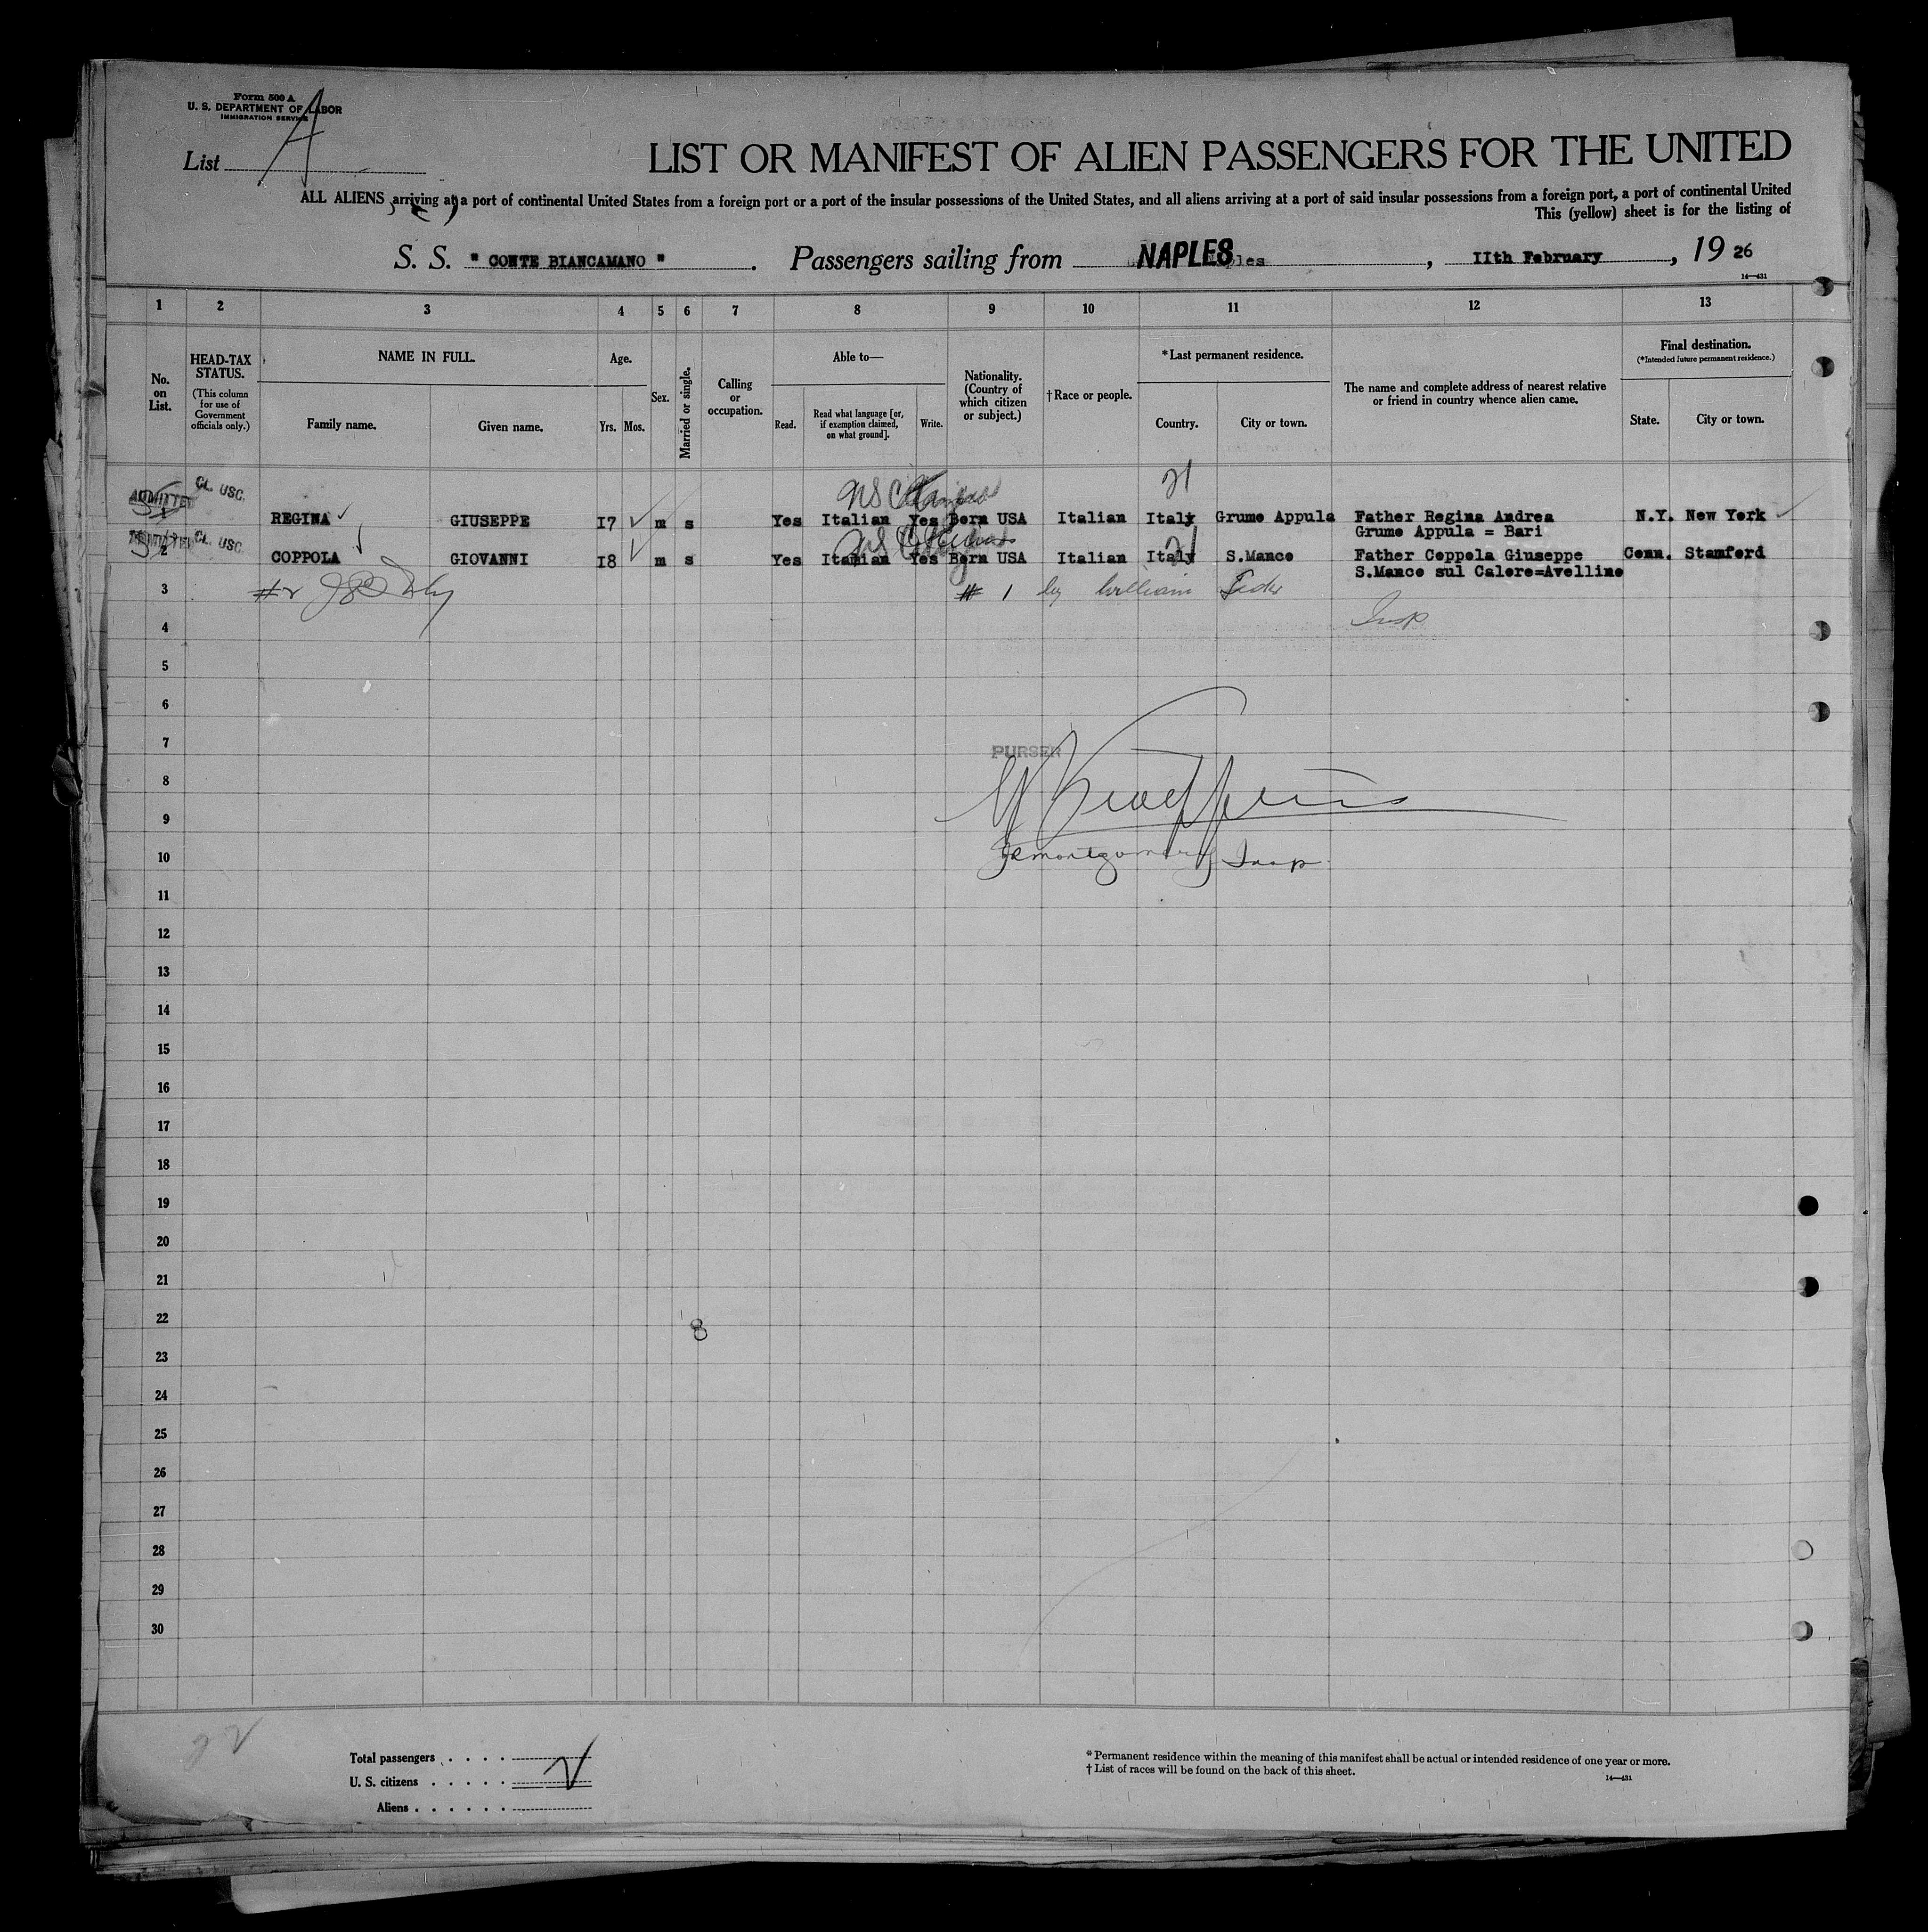 Form 500 A
U. S. DEPARTMENT OF LABOR
IMMIGRATION SERVICE
List A
LIST OR MANIFEST OF ALIEN PASSENGERS FOR THE UNITED
ALL ALIENS arriving at a port of continental United States from a foreign port or a port of the insular possessions of the United States, and all aliens arriving at a port of said insular possessions from a foreign port, a port of continental United
This (yellow) sheet is for the listing of
S. S. " CONTE BIANCAMANO " . Passengers sailing from NAPLES , IIth February , 19 26
14—431
1 2 3 4 5 6 7 8 9 10 11 12 13
No. on List.
HEAD-TAX STATUS.
(This column for use of Government officials only.)
NAME IN FULL.
Family name. Given name.
Age.
Yrs. Mos.
Sex.
Married or single.
Calling or occupation.
Able to—
Read. Read what language [or, if exemption claimed, on what ground]. Write.
Nationality. (Country of which citizen or subject.)
†Race or people.
*Last permanent residence.
Country. City or town.
The name and complete address of nearest relative or friend in country whence alien came.
Final destination.
(*Intended future permanent residence.)
State. City or town.
21
ADMITTED CL. USC.
1 REGINA GIUSEPPE I7 m s Yes Italian Yes Born USA Italian Italy Grumo Appula Father Regina Andrea N.Y. New York
Grumo Appula = Bari
ADMITTED CL. USC.
21
2 COPPOLA GIOVANNI I8 m s Yes Italian Yes Born USA Italian Italy S.Mance Father Coppola Giuseppe Conn. Stamford
S.Mance sul Calore=Avellino
3 #2 # 1 by William
4 Insp
5
6
7 PURSER
8
9
10 Montgomery Insp.
11
12
13
14
15
16
17
18
19
20
21
22 8
23
24
25
26
27
28
29
30
Total passengers . . . .
U. S. citizens . . . . .
Aliens . . . . . .
* Permanent residence within the meaning of this manifest shall be actual or intended residence of one year or more.
† List of races will be found on the back of this sheet.
14—431